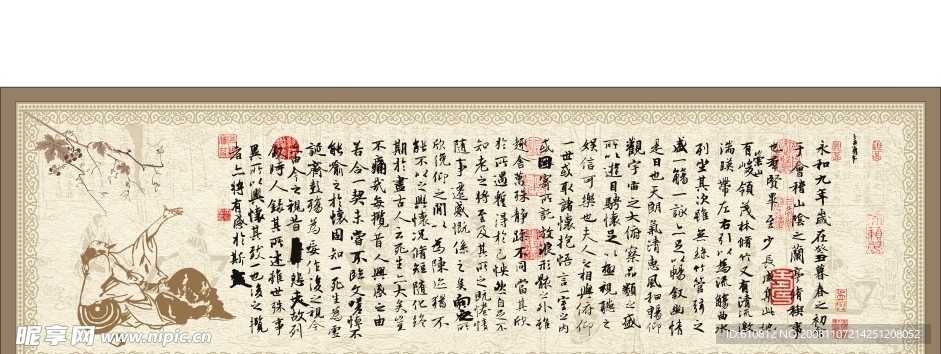 永和九年歲在癸丑暮春之初
于會稽山陰之蘭亭脩稧事
也羣賢畢至少長咸集此地
有崇山峻領茂林脩竹又有清流激
湍暎帶左右引以為流觴曲水
列坐其次雖無絲竹管弦之
盛一觴一詠亦足以暢叙幽情
是日也天朗氣清惠風和暢仰
觀宇宙之大俯察品類之盛
所以遊目騁懷足以極視聽之
娛信可樂也夫人之相與俯仰
一世或取諸懷抱悟言一室之內
或因寄所託放浪形骸之外雖
趣舍萬殊靜躁不同當其欣
於所遇蹔得於己怏然自足不
知老之將至及其所之既惓情
隨事遷感慨係之矣向之所
欣俛仰之閒以為陳迹猶不
能不以之興懷況脩短隨化終
期於盡古人云死生亦大矣豈
不痛哉每攬昔人興感之由
若合一契未嘗不臨文嗟悼不
能喻之於懷固知一死生為虛
誕齊彭殤為妄作後之視今
亦由今之視昔悲夫故列
叙時人錄其所述雖世殊事
異所以興懷其致一也後之攬
者亦將有感於斯文
昵享网 www.nipic.cn
ID:610812 NO:20081107214251208052